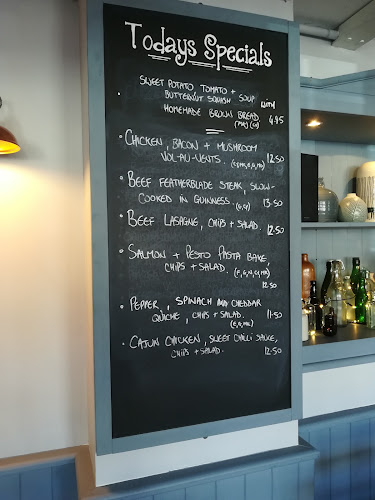 Todays Specials
SWEET POTATO TOMATO +
BUTTERNUT SQUASH SOUP
HOMEMADE BROWN BREAD 4.95
• CHICKEN, BACON + MUSHROOM
VOL-AU-VENTS. 12.50
• BEEF FEATHERBLADE STEAK, SLOW-
COOKED IN GUINNESS. 13.50
• BEEF LASAGNE, CHIPS + SALAD. 12.50
• SALMON + PESTO PASTA BAKE,
CHIPS + SALAD.
12.50
• PEPPER, SPINACH AND CHEDDAR
QUICHE, CHIPS + SALAD. 11.50
• CAJUN CHICKEN, SWEET CHILLI SAUCE,
CHIPS + SALAD. 12.50